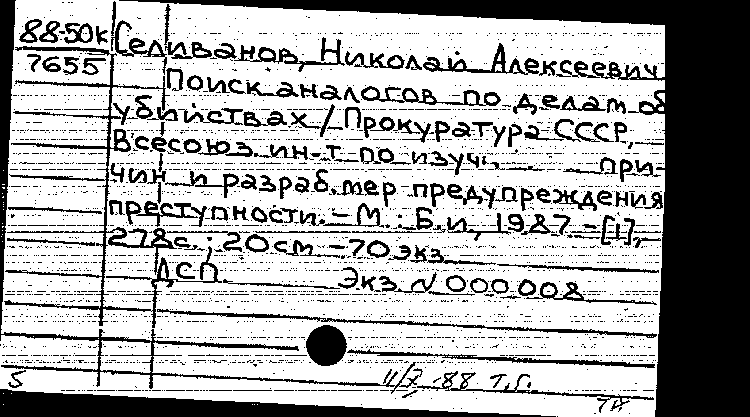 88-50к Селиванов, Николай Алексеевич
7655
Поиск аналогов по делам об
убийствах / Прокуратура СССР,
Всесоюз. ин-т по изуч. при-
чин и разраб. мер предупреждения
преступности. - М.: Б.и, 1987. - [1],
278с.; 20см - 70 экз
ДСП Экз № 000008
5 88 т.г.